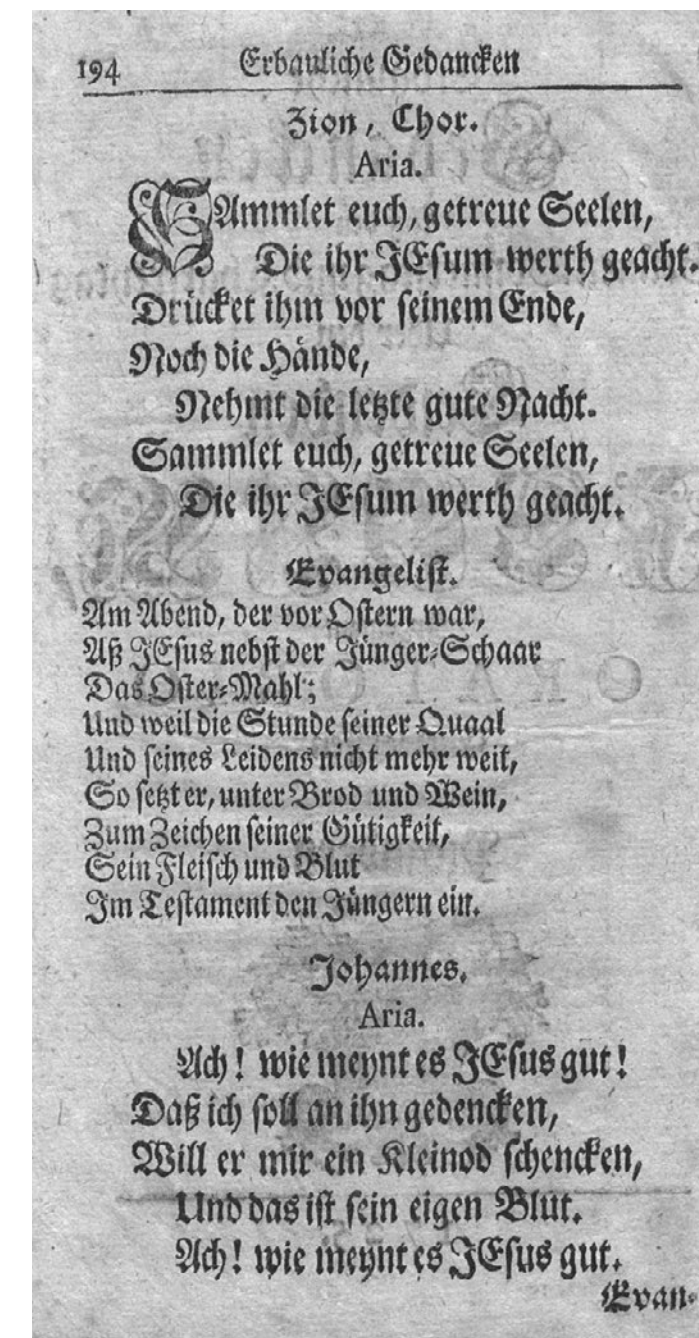 194 Erbauliche Gedancken
Zion, Chor.
Aria.
SAmmlet euch, getreue Seelen,
Die ihr JEsum werth geacht.
Drücket ihm vor seinem Ende,
Noch die Hände,
Nehmt die letzte gute Nacht.
Sammlet euch, getreue Seelen,
Die ihr JEsum werth geacht.
Evangelist.
Am Abend, der vor Ostern war,
Aß JEsus nebst der Jünger-Schaar
Das Oster-Mahl;
Und weil die Stunde seiner Quaal
Und seines Leidens nicht mehr weit,
So setzt er, unter Brod und Wein,
Zum Zeichen seiner Gütigkeit,
Sein Fleisch und Blut
Im Testament den Jüngern ein.
Johannes.
Aria.
Ach! wie meynt es JEsus gut!
Daß ich soll an ihn gedencken,
Will er mir ein Kleinod schencken,
Und das ist sein eigen Blut.
Ach! wie meynt es JEsus gut.
Evan-